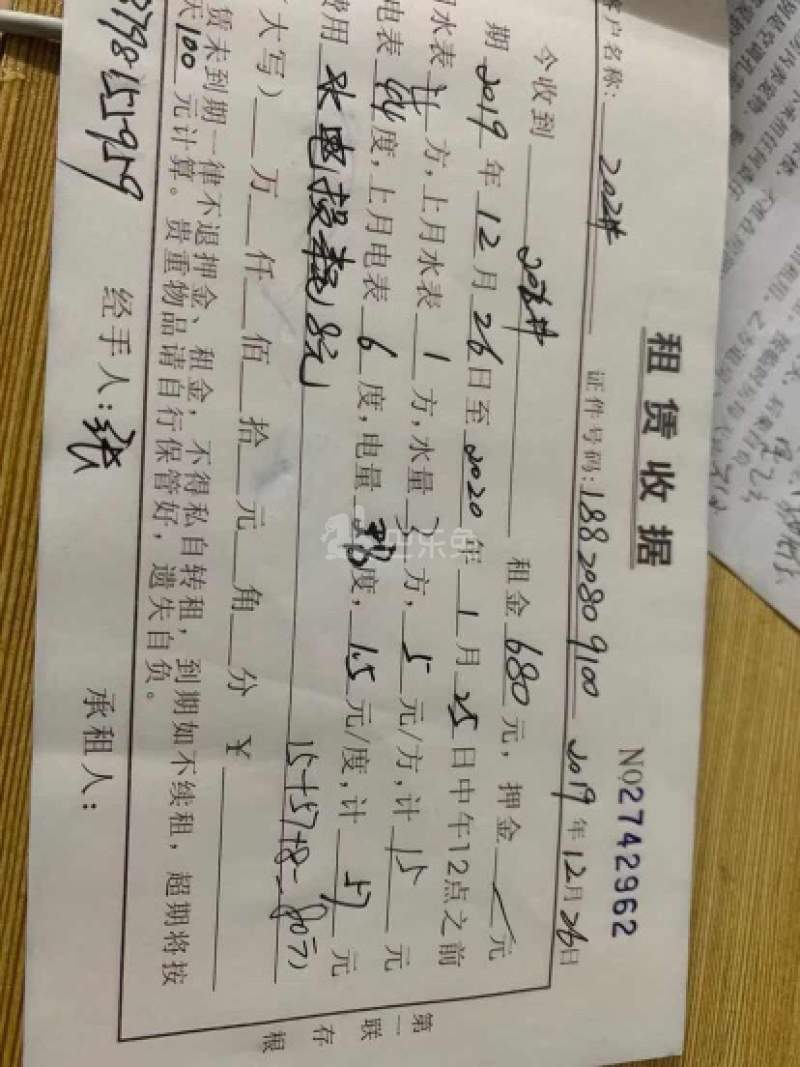 租赁收据
NO2742962
客户名称: 202# 证件号码: 18820809100 2019年12月26日
今收到 202# 租金680元,押金 / 元
期2019年12月26日至2020年1月25日中午12点之前
月水表 4 方,上月水表 1 方,水量 3 方, 5 元/方,计 15 元
电表 44 度,上月电表 6 度,电量 38 度, 1.5 元/度,计 57 元
费用 水电损耗8元 15+57+8=80元)
大写)__万__仟__佰__拾__元__角__分 ¥
赁未到期一律不退押金、租金,不得私自转租,到期如不续租,超期将按
天100元计算。贵重物品请自行保管好,遗失自负。
经手人: 张 承租人:
第一联 存根